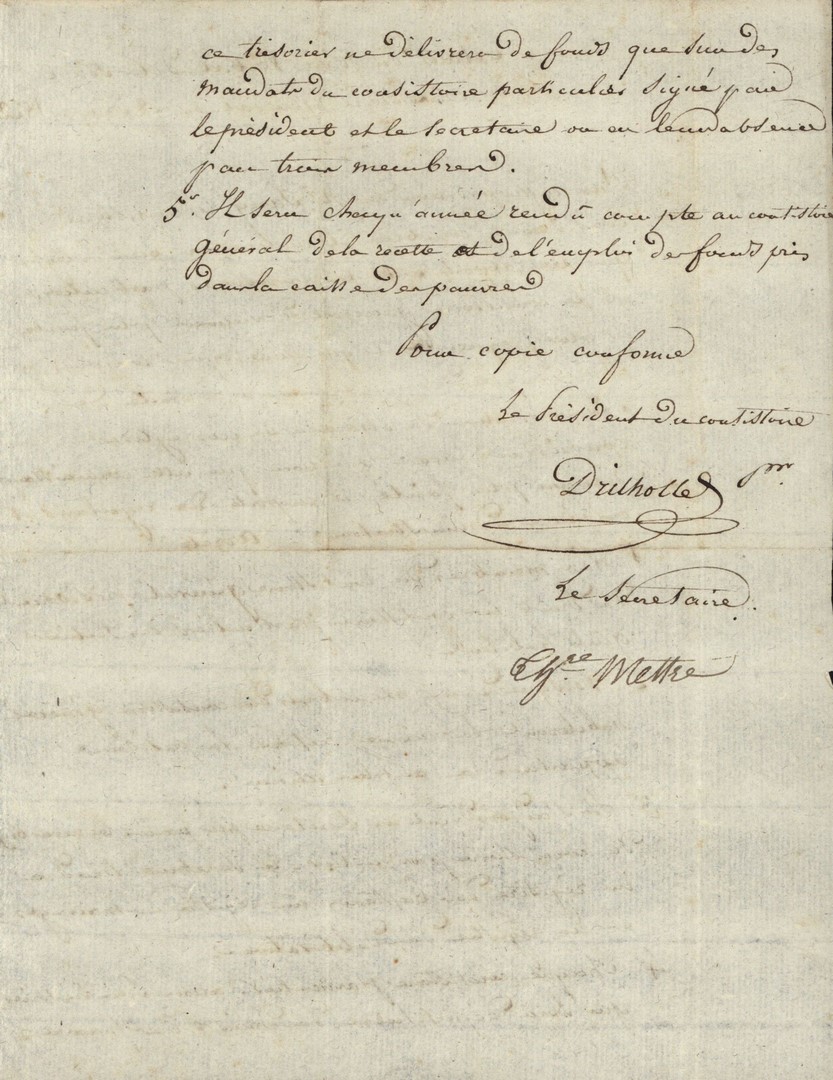 ce trésorier ne délivrera de fonds que sur des
mandats du consistoire particulier signé par
le président et le secretaire ou en leur absence
par trois membres.
5°. Il sera chaqu'année rendû compte au consistoire
général de la recette et de l'emploi des fonds pris
dans la caisse des pauvres
Pour copie conforme
Le Président du consistoire
Drilholle pr.
Le Secretaire.
Mettre